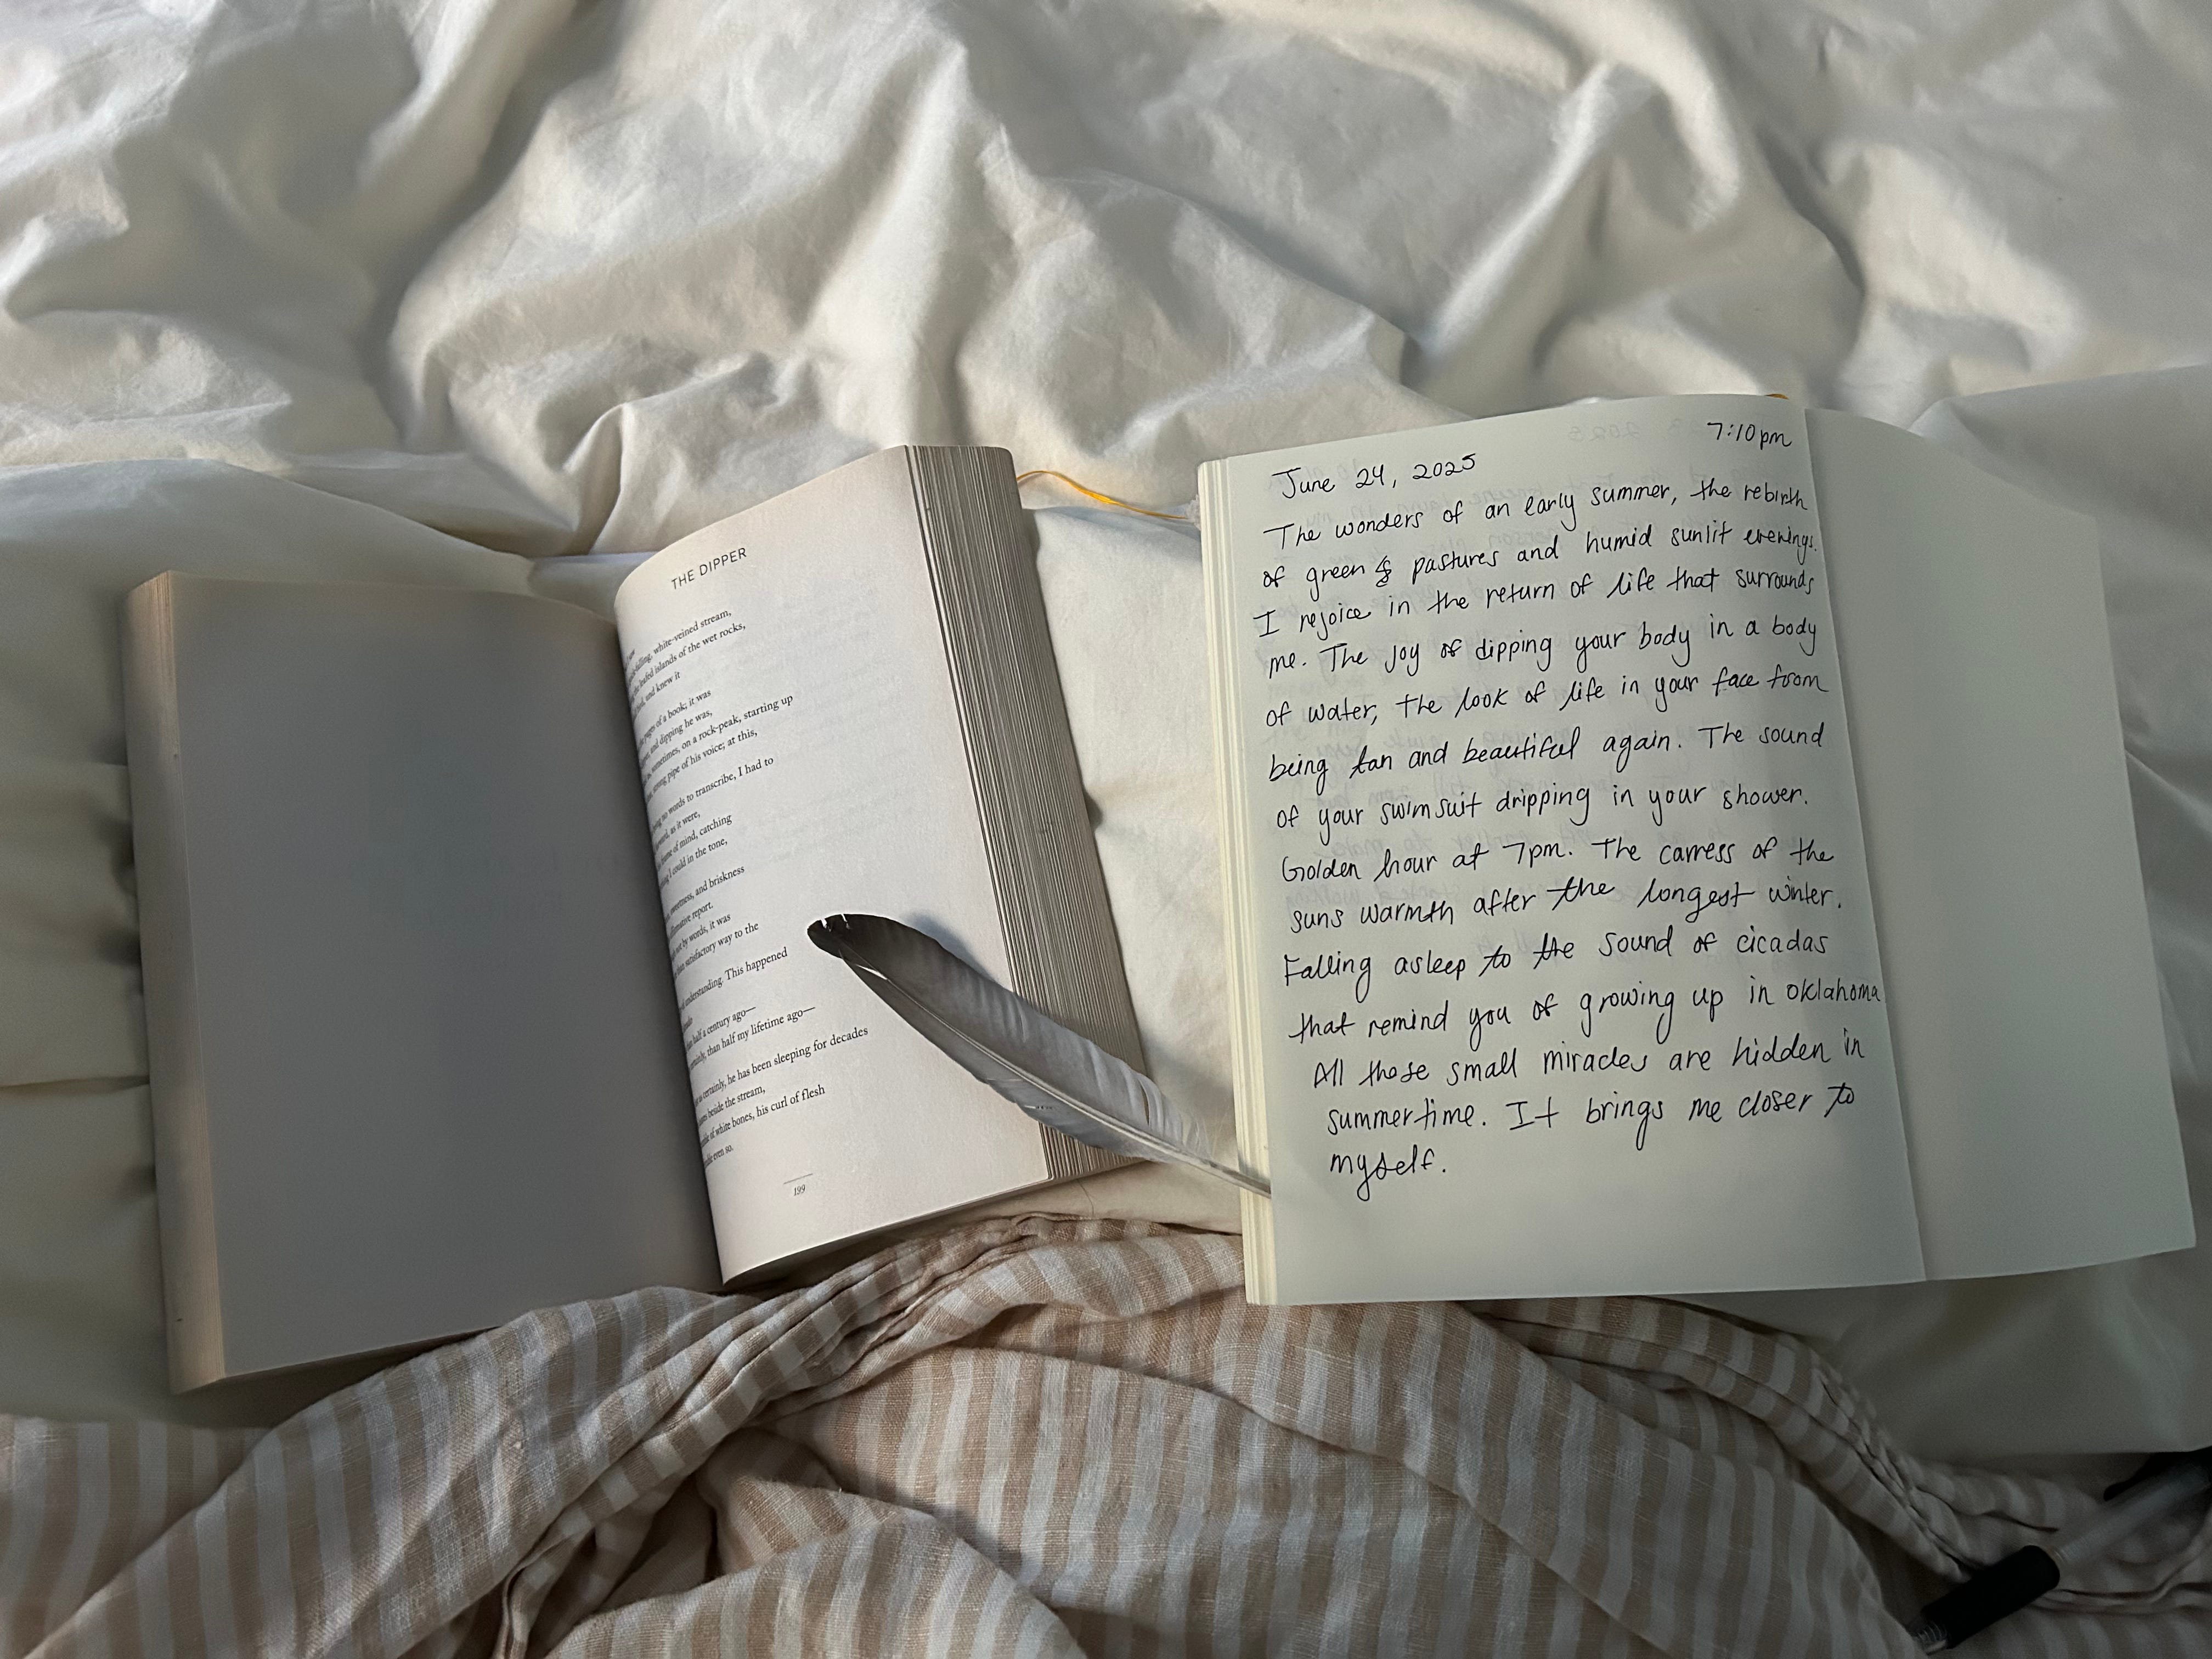 THE DIPPER
white-veined stream,
leafed islands of the wet rocks,
and knew it
pages of a book; it was
and dipping he was,
sometimes, on a rock-peak, starting up
strong pipe of his voice; at this,
no words to transcribe, I had to
as it were,
frame of mind, catching
I could in the tone,
sweetness, and briskness
report.
not by words, it was
satisfactory way to the
understanding. This happened
half a century ago—
certainly, than half my lifetime ago—
certainly, he has been sleeping for decades
beside the stream,
of white bones, his curl of flesh
even so.
199
7:10pm
June 24, 2025
The wonders of an early summer, the rebirth
of green pastures and humid sunlit evenings.
I rejoice in the return of life that surrounds
me. The joy of dipping your body in a body
of water, the look of life in your face from
being tan and beautiful again. The sound
of your swimsuit dripping in your shower.
Golden hour at 7pm. The carress of the
suns warmth after the longest winter.
Falling asleep to the sound of cicadas
that remind you of growing up in oklahoma
All these small miracles are hidden in
summertime. It brings me closer to
myself.